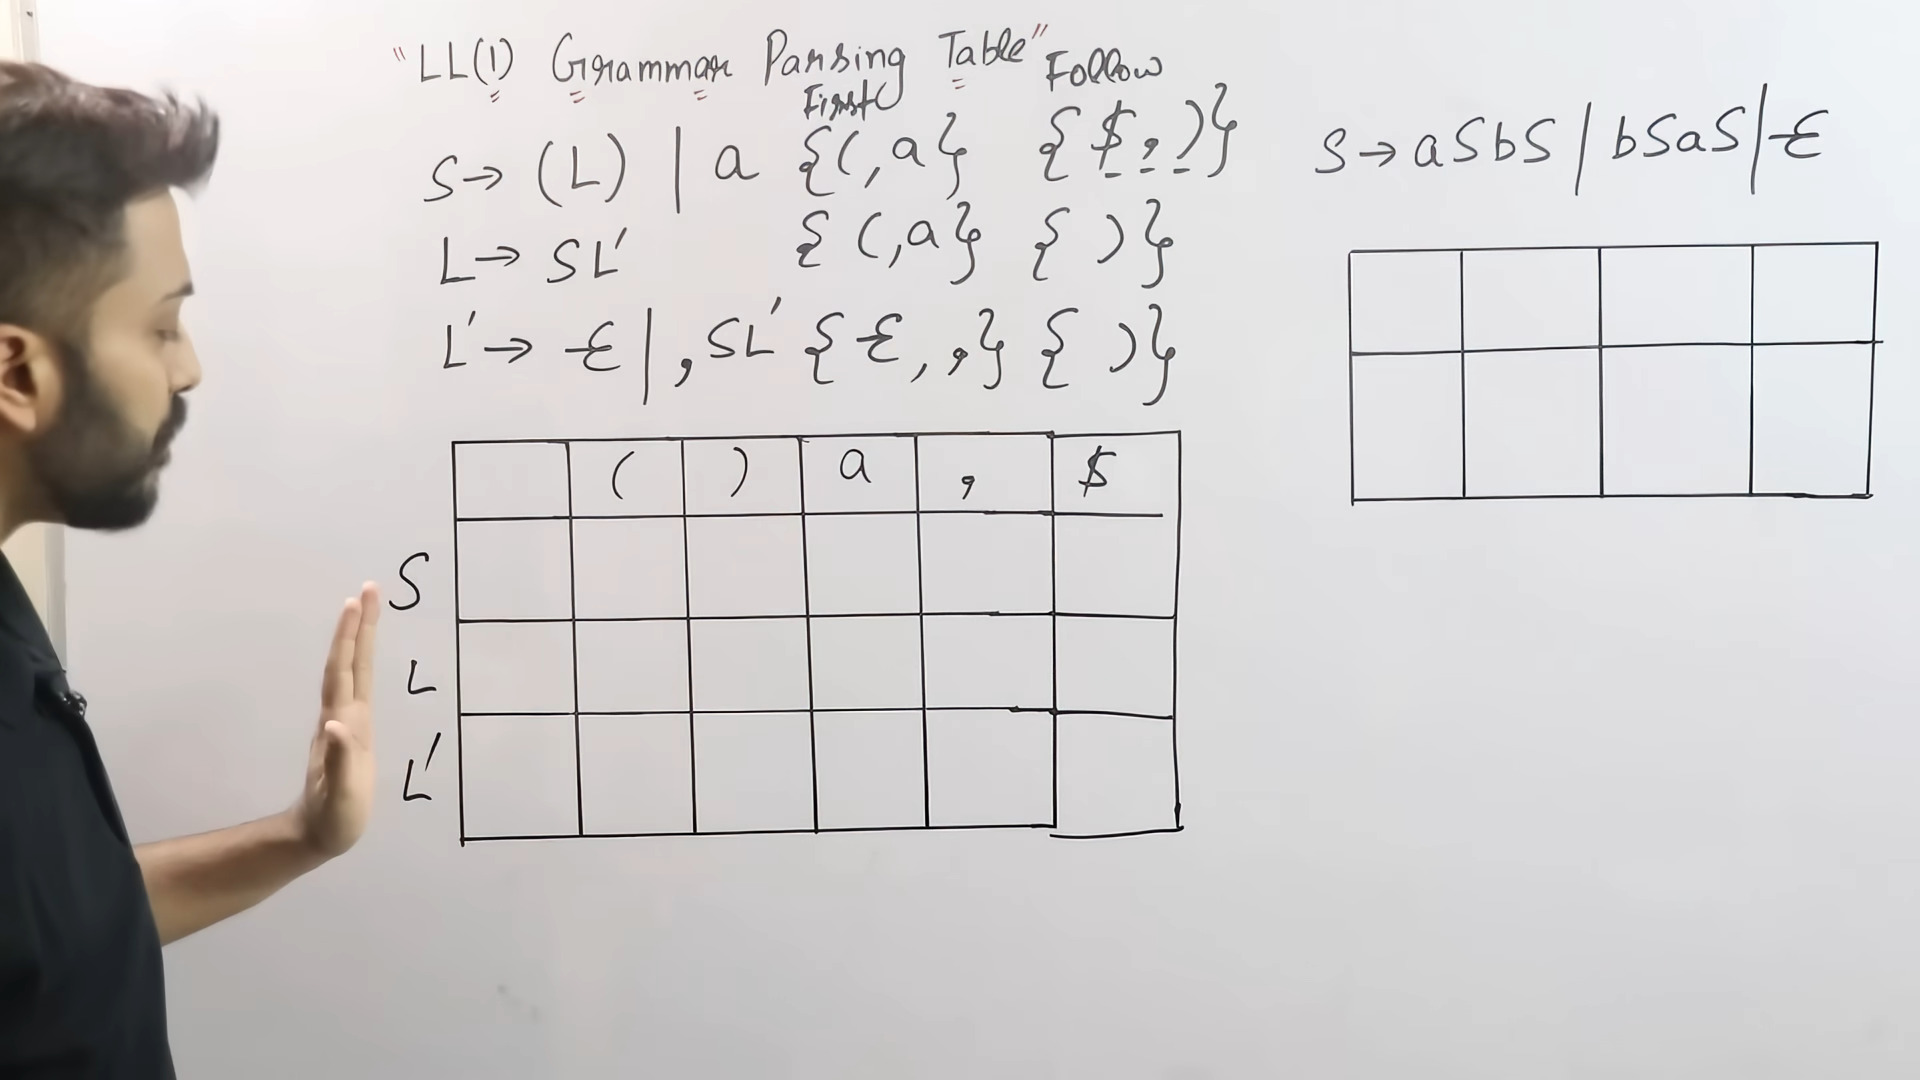 "LL(1) Grammar Parsing Table"
First Follow
S → (L) | a {(,a} {$,,)}
L → SL' {(,a} {)}
L' → Ɛ | ,SL' {Ɛ, ,} {)}
( ) a , $
S
L
L'
S → aSbS | bSaS | Ɛ